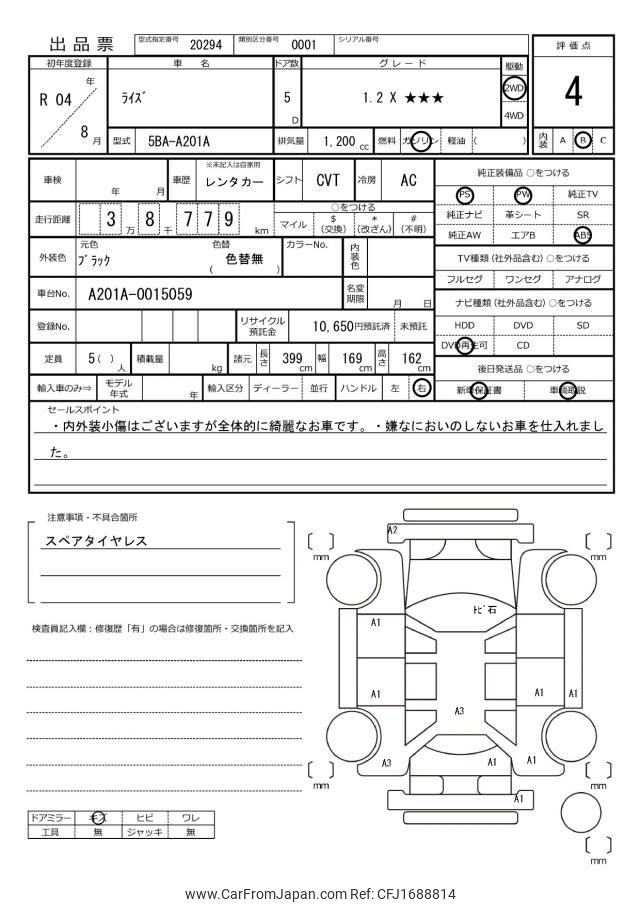 出品票 型式指定番号 20294 類別区分番号 0001 シリアル番号
評価点
4
内装 A B C
初年度登録 車名 ドア数 グレード 駆動
R 04 年 8 月 ﾗｲｽﾞ 5 D 1.2 X ★★★ 2WD
4WD
型式 5BA-A201A 排気量 1,200 cc 燃料 ガソリン 軽油 ( )
車検 年 月 車歴 ※未記入は自家用 レンタカー シフト CVT 冷房 AC
走行距離 3 万 8 千 7 7 9 km
○をつける
マイル $ (交換) * (改ざん) # (不明)
外装色 元色 ﾌﾞﾗｯｸ 色替 ( 色替無 ) カラーNo. 内装色
車台No. A201A-0015059 名変期限 月 日
登録No. リサイクル預託金 10,650円預託済 未預託
定員 5( ) 人 積載量 kg 諸元 長さ 399 cm 幅 169 cm 高さ 162 cm
輸入車のみ⇒ モデル年式 年 輸入区分 ディーラー 並行 ハンドル 左 右
純正装備品 ○をつける
PS PW 純正TV
純正ナビ 革シート SR
純正AW エアB ABS
TV種類 (社外品含む) ○をつける
フルセグ ワンセグ アナログ
ナビ種類 (社外品含む) ○をつける
HDD DVD SD
DVD再生可 CD
後日発送品 ○をつける
新車保証書 車輌取説
セールスポイント
・内外装小傷はございますが全体的に綺麗なお車です。・嫌なにおいのしないお車を仕入れまし
た。
注意事項・不具合箇所
スペアタイヤレス
検査員記入欄：修復歴「有」の場合は修復箇所・交換箇所を記入
ドアミラー キズ ヒビ ワレ
工具 無 ジャッキ 無
A2
mm
mm
ﾄﾋﾞ石
A1
A1
A1
A1
A3
A3
A1
A1
mm
mm
A1
mm
www.CarFromJapan.com Ref: CFJ1688814